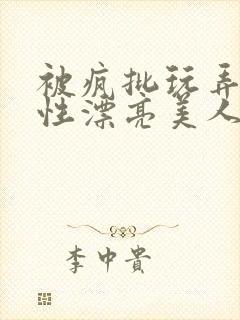 被疯批玩弄
性漂亮美人
李中贵